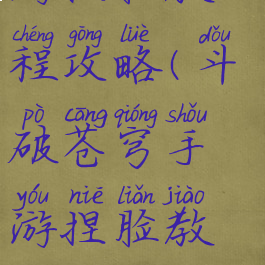 chéng gōng lüè dǒu
程攻略(斗
pò cāng qióng shǒu
破苍穹手
yóu niē liǎn jiào
游捏脸教